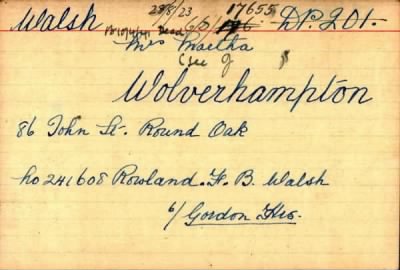 Walsh 28/5/23 17655 D.P. 201.
Dead
Mrs Martha
(see
Wolverhampton
86 John St. Round Oak
no 241608 Rowland. H. B. Walsh
6/ Gordon Hrs.